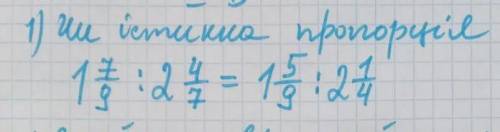 1) Чи істинна пропорція
1 7/9 : 2 4/7 = 1 5/9 : 2 1/4